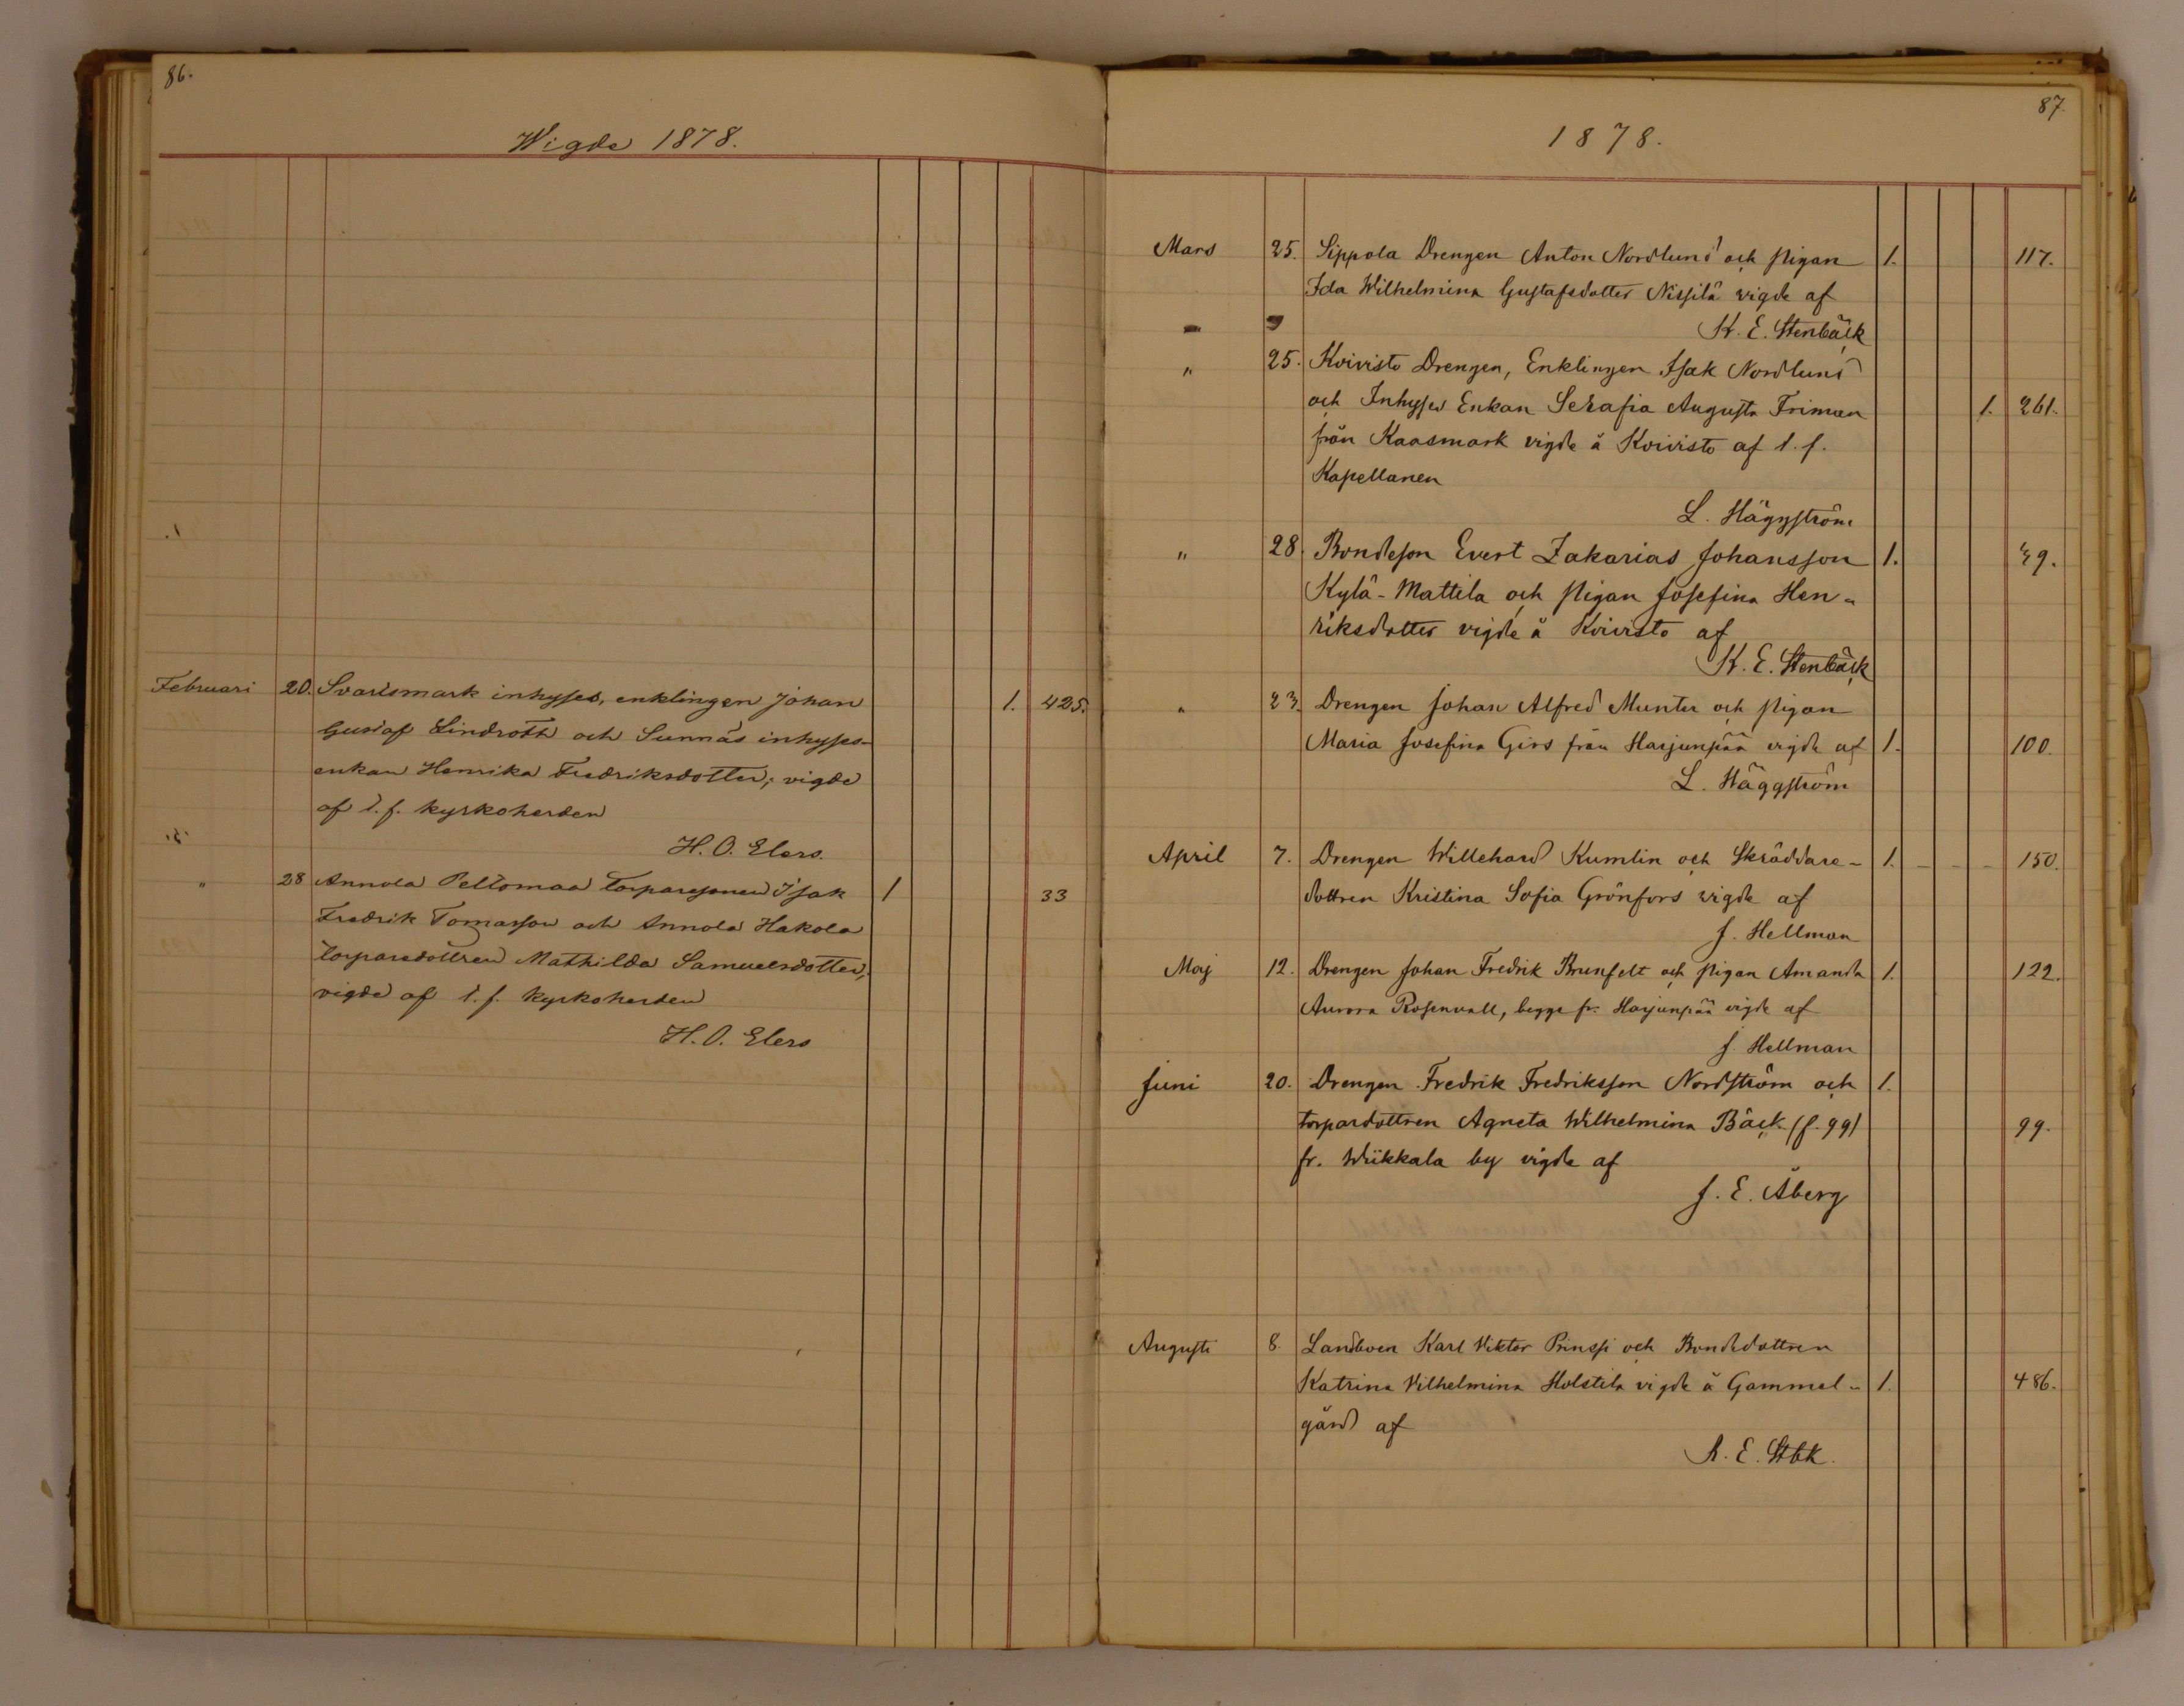 86.
Wigde 1878.
Februari 20. Svartsmark inhyses, enklingen Johan 1. 425.
Gustaf Lindroth och Sunnäs inhyses-
enkan Henrika Fredriksdotter, vigde
af t. f. kyrkoherden
H. O. Elers.
" 28 Annola Peltomaa torparesonen Isak 1 33
Fredrik Tomasson och Annola Hakola
torparedottren Mathilda Samuelsdotter,
vigde af t. f. kyrkoherden
H. O. Elers
87.
1878.
Mars 25. Sippola Drengen Anton Nordlund och pigan 1. 117.
Ida Wilhelmina Gustafsdotter Nissilä vigde af
K. E. Stenbäck
" 25. Koivisto Drengen, Enklingen Isak Nordlund
och Inhyses Enkan Serafia Augusta Friman 1. 261.
från Kaasmark vigde å Koivisto af t. f.
Kapellanen
L. Häggström
" 28. Bondeson Evert Zakarias Johansson 1. 49.
Kylä-Mattila och pigan Josefina Hen-
riksdotter vigde å Koivisto af
K. E. Stenbäck
" 23. Drengen Johan Alfred Munter och pigan
Maria Josefina Girs från Harjunpää vigde af 1. 100.
L. Häggström
April 7. Drengen Willehard Kumlin och Skräddare- 1. - - - 150.
dottren Kristina Sofia Grönfors vigde af
J. Hellman
Maj 12. Drengen Johan Fredrik Brunfelt och pigan Amanda 1. 122.
Aurora Rosenvall, begge fr. Harjunpää vigde af
J. Hellman
Juni 20. Drengen Fredrik Fredriksson Nordström och 1.
torpardottren Agneta Wilhelmina Bäck (f. 99) 99.
fr. Wiikkala by vigde af
J. E. Åberg
Augusti 8. Landboen Karl Viktor Prinssi och Bondedottren
Katrina Vilhelmina Holstila vigde å Gammel- 1. 486.
gård af
K. E. Stbk.